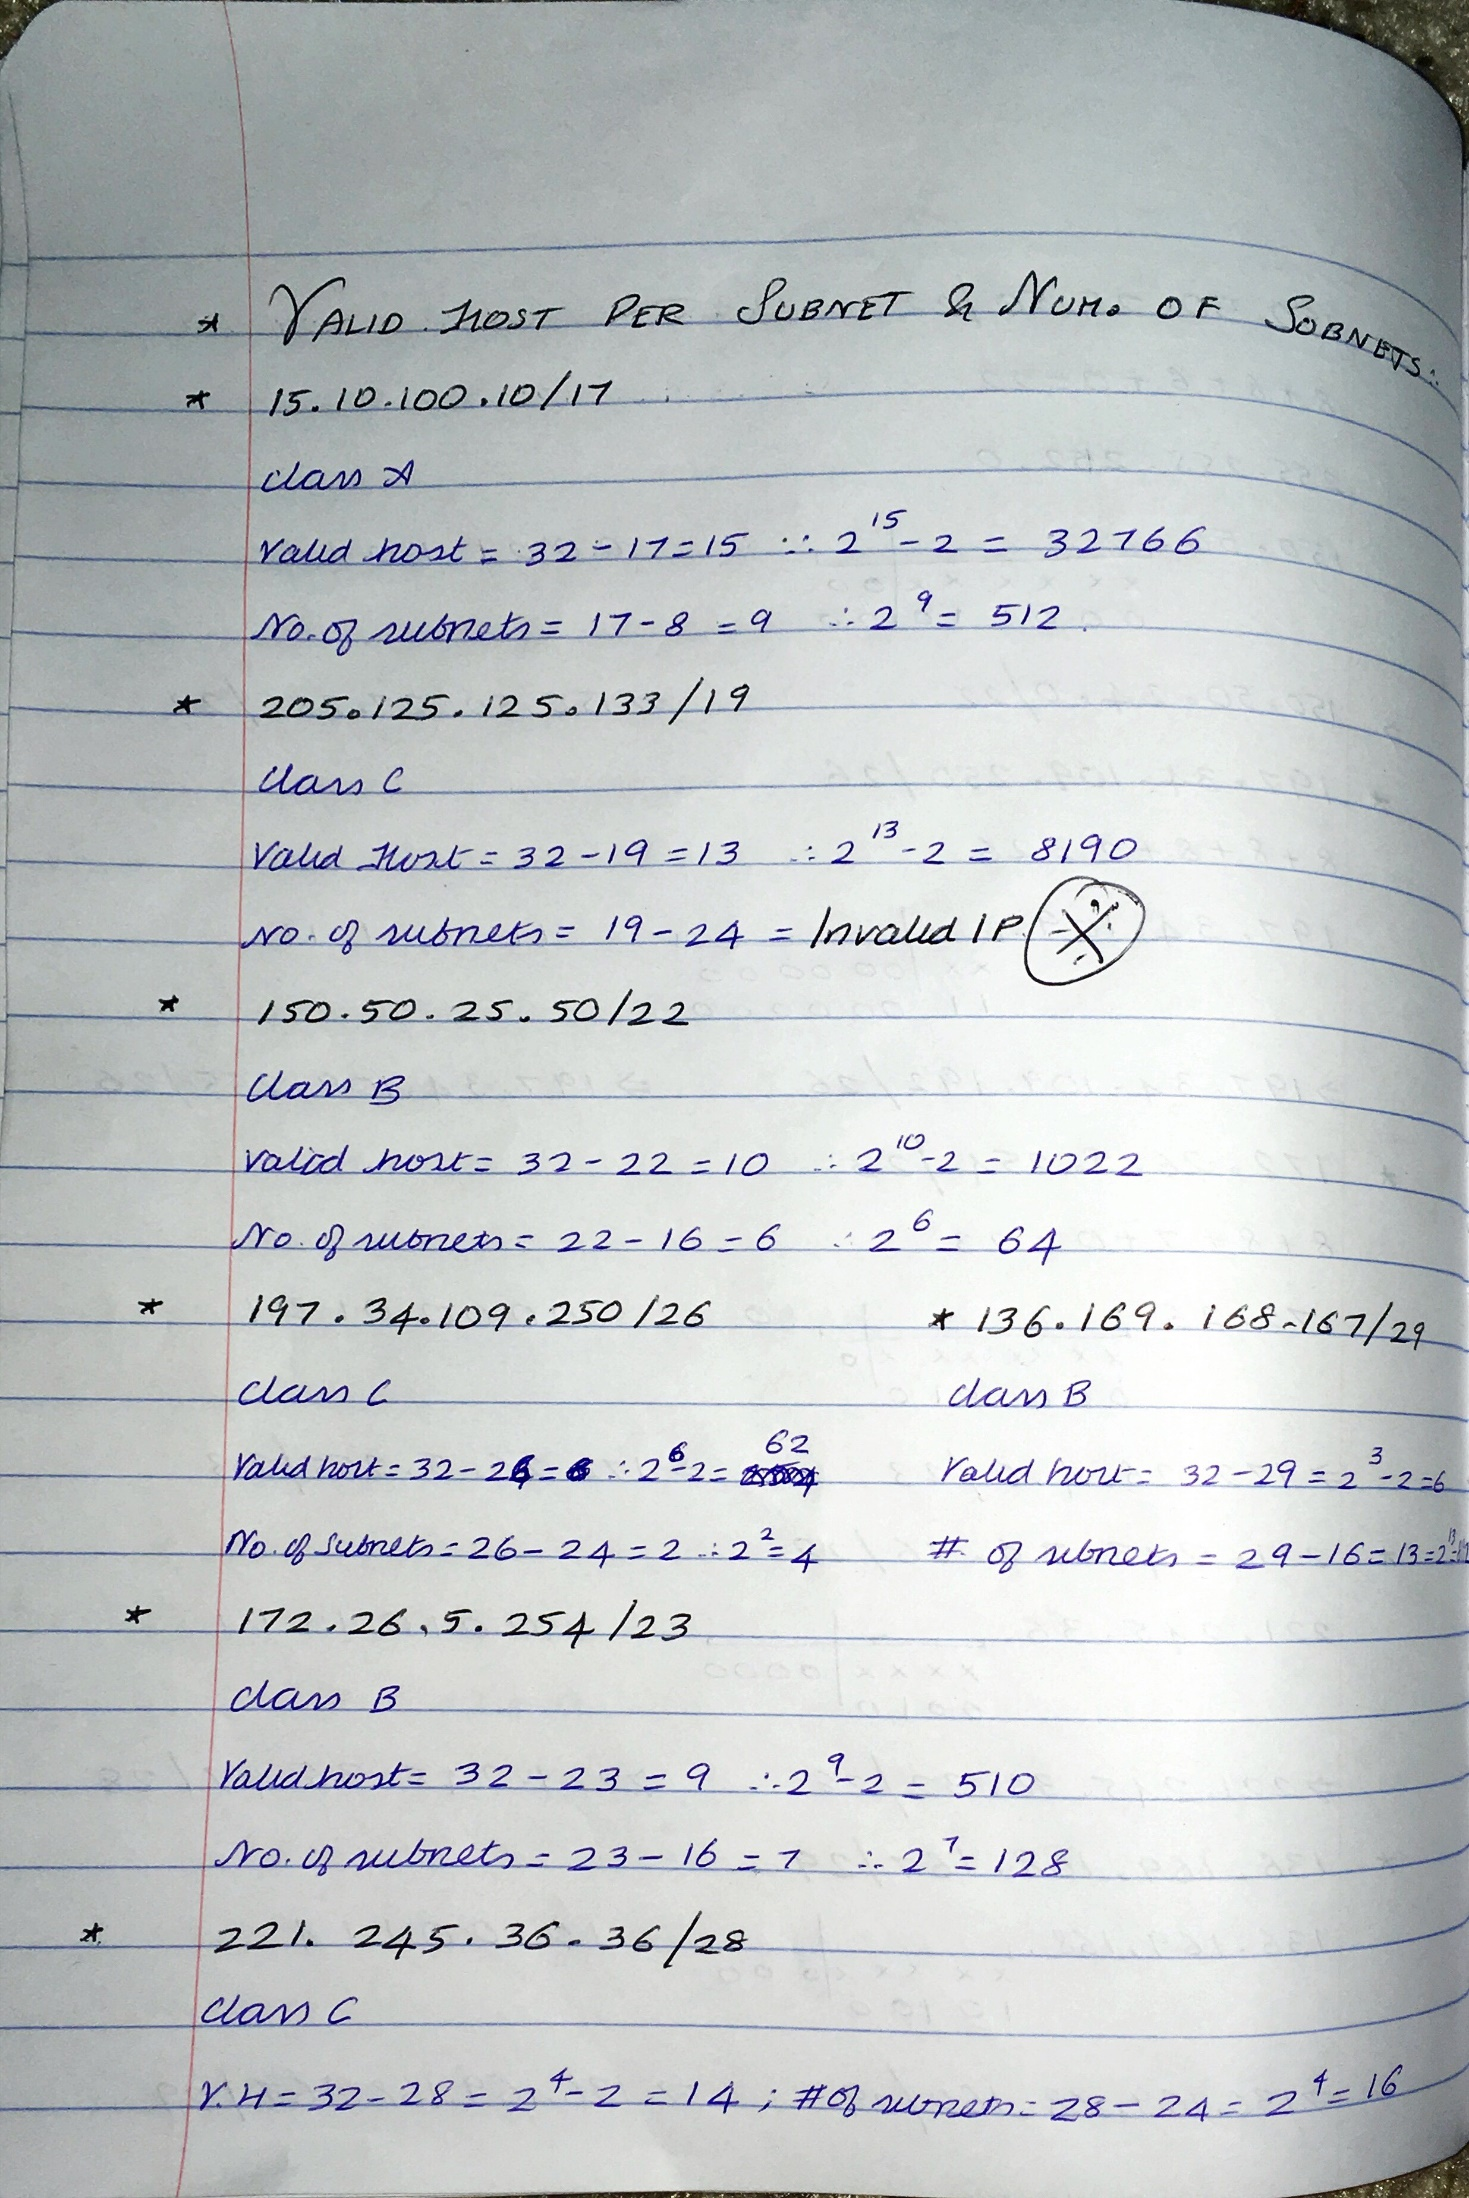 * VALID HOST PER SUBNET & NUM. OF SUBNETS:
* 15.10.100.10/17
class A
Valid host = 32-17=15 ∵ 2^15-2 = 32766
No. of subnets = 17-8 = 9 ∴ 2^9 = 512
* 205.125.125.133/19
Class C
Valid Host = 32-19 = 13 ∴ 2^13-2 = 8190
No. of subnets = 19-24 = Invalid IP
* 150.50.25.50/22
Class B
Valid host = 32-22 = 10 ∴ 2^10-2 = 1022
No. of subnets = 22-16 = 6 ∴ 2^6 = 64
* 197.34.109.250/26
class C
Valid host = 32-26=6 ∴ 2^6-2= 62
No. of Subnets = 26-24 = 2 ∴ 2^2=4
* 136.169.168.167/29
class B
Valid host = 32-29 = 2^3-2=6
# of subnets = 29-16 = 13 = 2^13
* 172.26.5.254/23
class B
Valid host = 32-23 = 9 ∴ 2^9-2 = 510
No. of subnets = 23-16 = 7 ∴ 2^7 = 128
* 221.245.36.36/28
class C
V.H = 32-28 = 2^4-2 = 14 ; # of subnets = 28-24 = 2^4 = 16